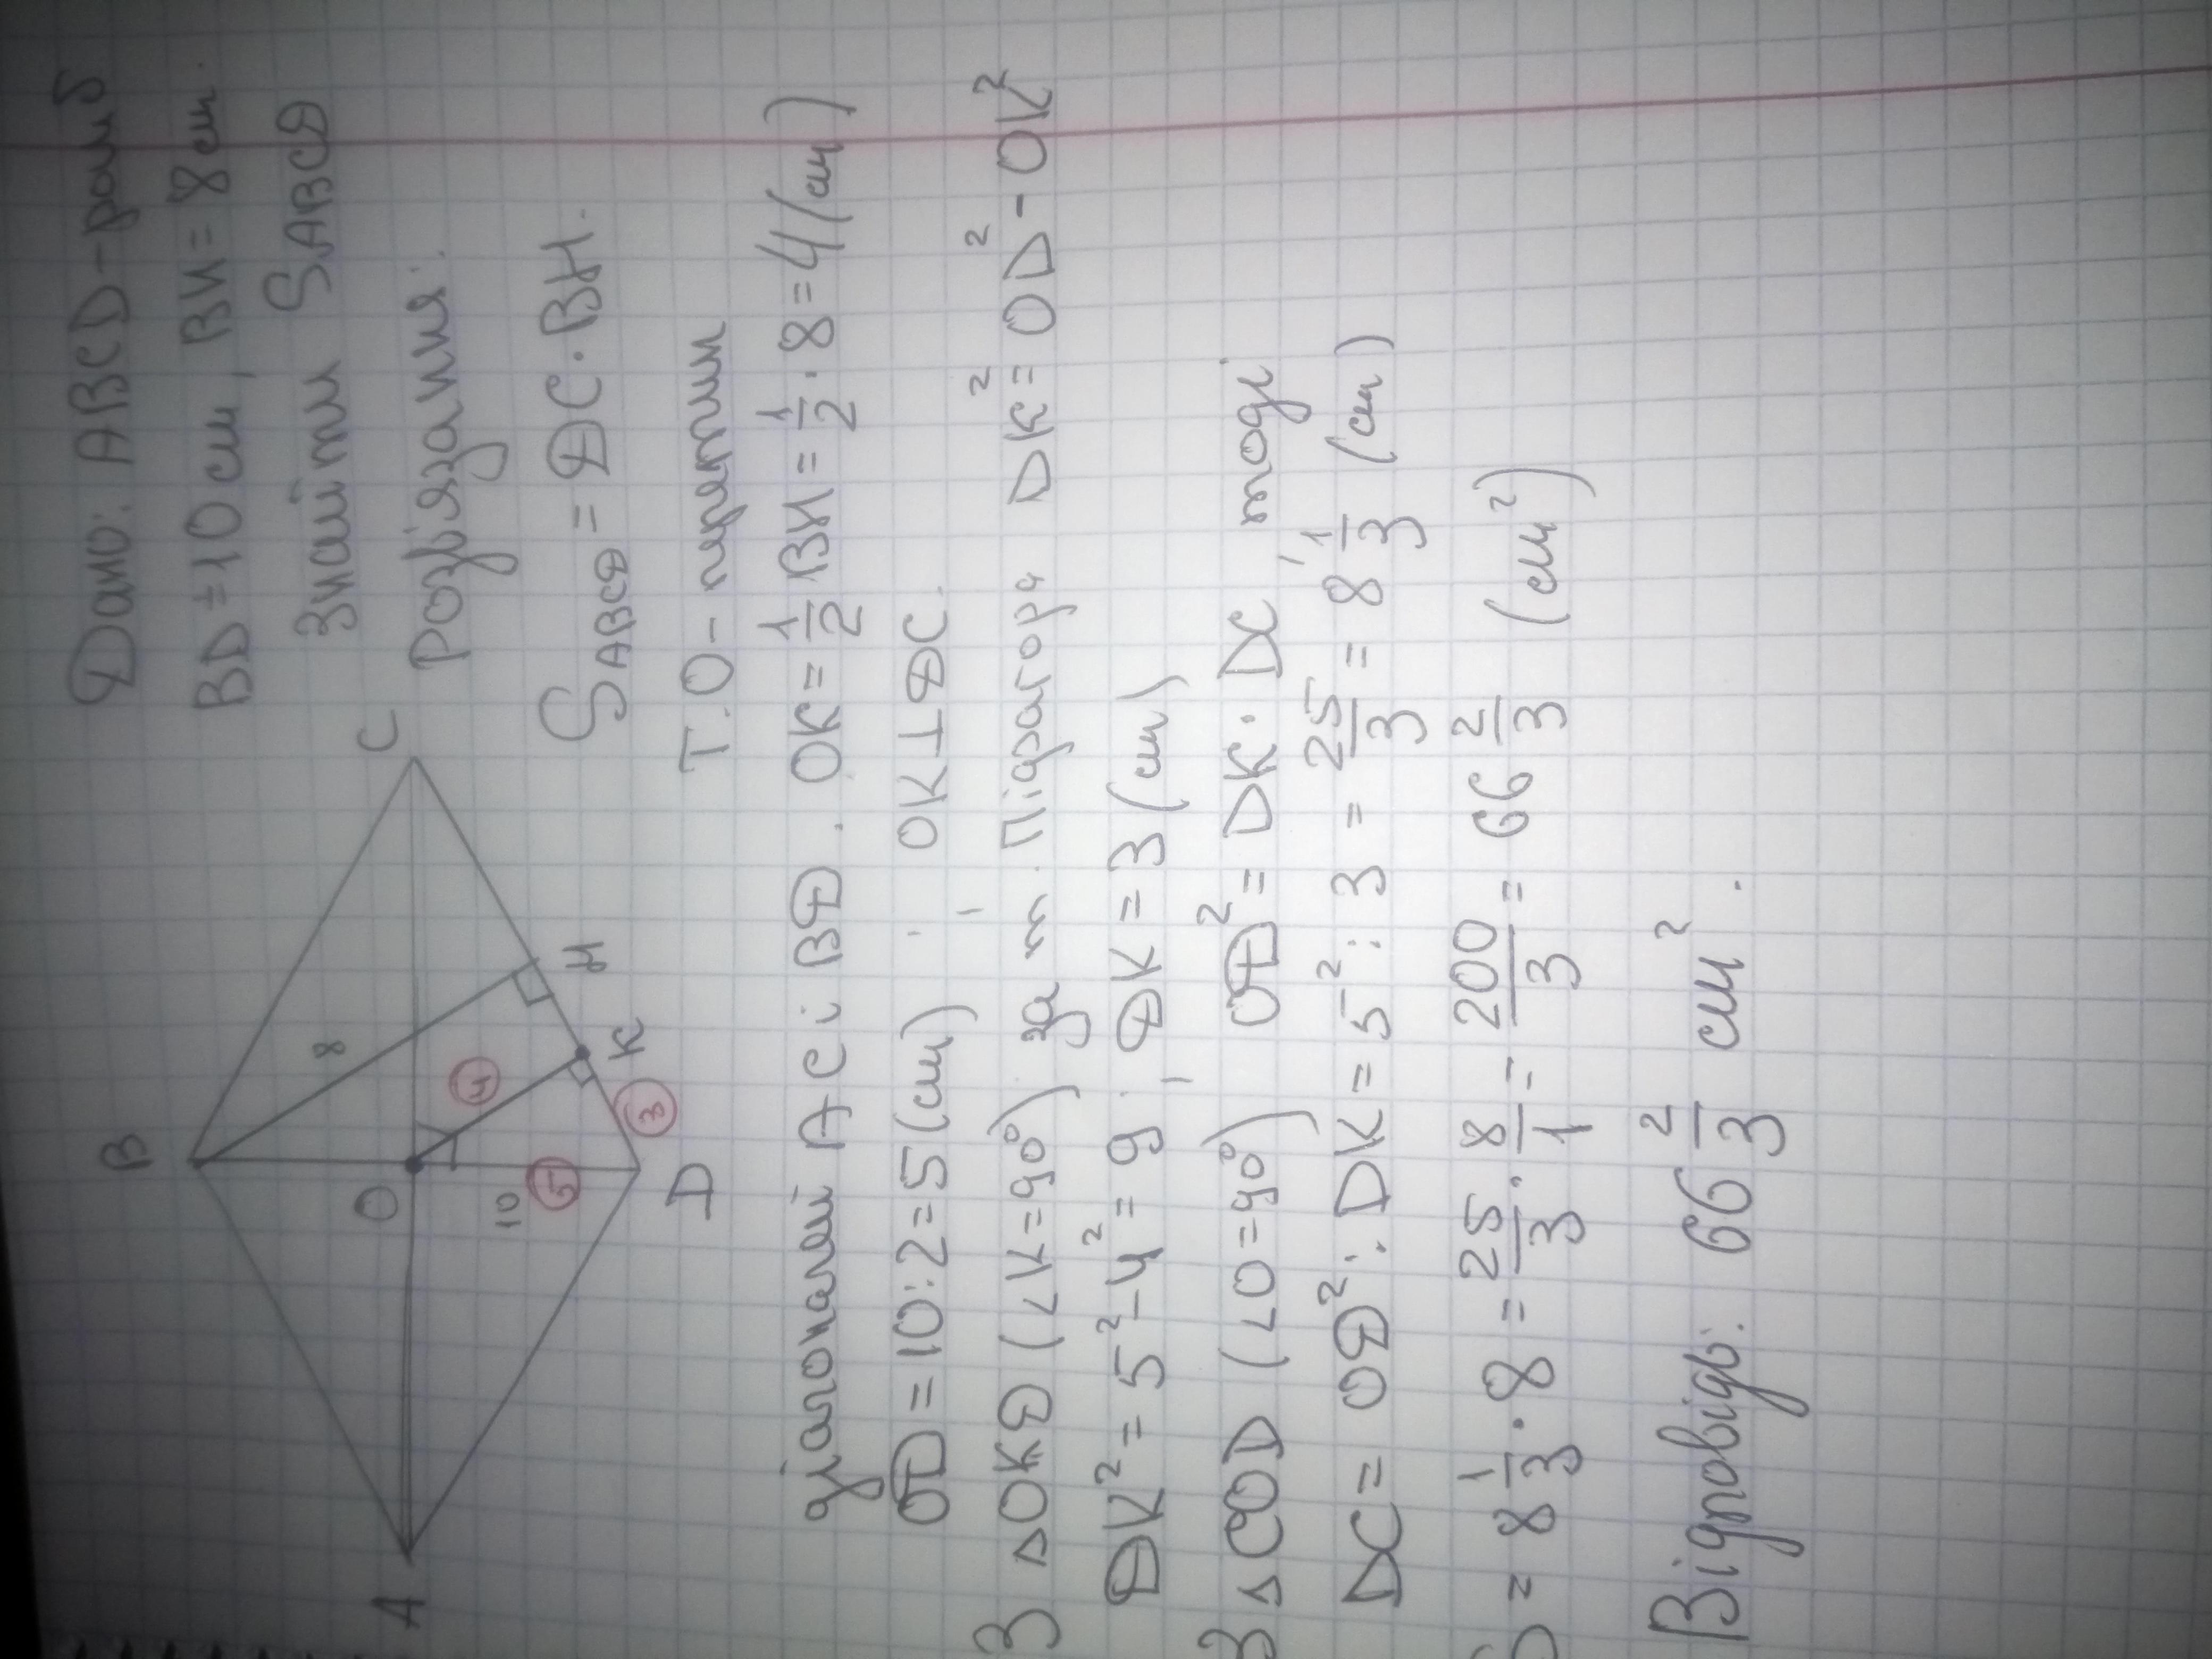 Дано: ABCD-ромб
BD = 10 см, BH = 8 см.
Знайти S_ABCD
Розв'язання:
S_ABCD = DC · BH.
Т. O - перетин
B
C
8
H
O
4
K
10
5
3
A
D
діагоналей AC і BD. OK = 1/2 BH = 1/2 · 8 = 4 (см)
OD = 10 : 2 = 5 (см) ; OK ⊥ DC.
З △OKD (∠K = 90°) за т. Піфагора DK² = OD² - OK²
DK² = 5² - 4² = 9 ; DK = 3 (см)
З △COD (∠O = 90°) OD² = DK · DC, тоді
DC = OD² : DK = 5² : 3 = 25/3 = 8 1/3 (см)
S = 8 1/3 · 8 = 25/3 · 8/1 = 200/3 = 66 2/3 (см²)
Відповідь: 66 2/3 см².